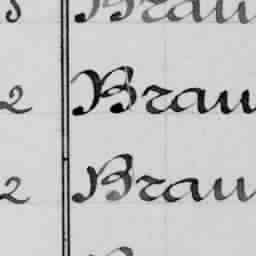 Brau
2 Brau
2 Brau